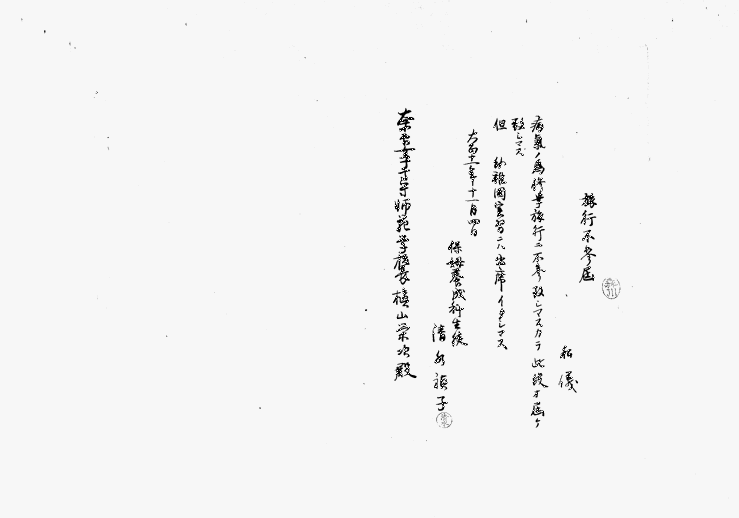 旅行不参届
私儀
病氣ノ為修学旅行ニ不参致シマスカラ此段オ届ケ
致シマス
但 幼稚園実習ニハ出席イタシマス
大正十一年十一月四日
保姆養成科生徒
清水禎子
奈良女子高等師範学校長槇山栄次殿